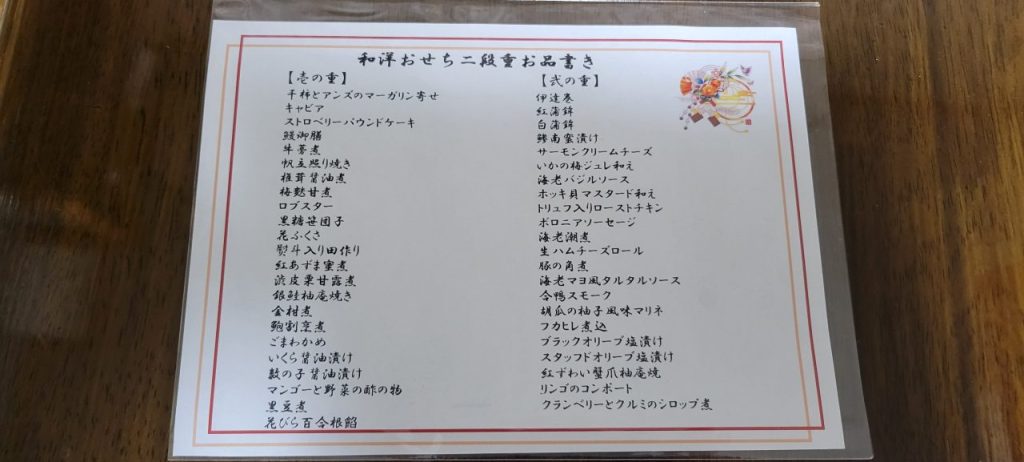 和洋おせち二段重お品書き
【壱の重】
干柿とアンズのマーガリン寄せ
キャビア
ストロベリーパウンドケーキ
鰻御膳
牛蒡煮
帆立照り焼き
椎茸醤油煮
梅麩甘煮
ロブスター
黒糖笹団子
花ふくさ
熨斗入り田作り
紅あずま蜜煮
渋皮栗甘露煮
銀鮭柚庵焼き
金柑煮
鮑割烹煮
ごまわかめ
いくら醤油漬け
数の子醤油漬け
マンゴーと野菜の酢の物
黒豆煮
花びら百合根餡
【弐の重】
伊達巻
紅蒲鉾
白蒲鉾
鯵南蛮漬け
サーモンクリームチーズ
いかの梅ジュレ和え
海老バジルソース
ホッキ貝マスタード和え
トリュフ入りローストチキン
ボロニアソーセージ
海老潮煮
生ハムチーズロール
豚の角煮
海老マヨ風タルタルソース
合鴨スモーク
胡瓜の柚子風味マリネ
フカヒレ煮込
ブラックオリーブ塩漬け
スタッフドオリーブ塩漬け
紅ずわい蟹爪柚庵焼
リンゴのコンポート
クランベリーとクルミのシロップ煮